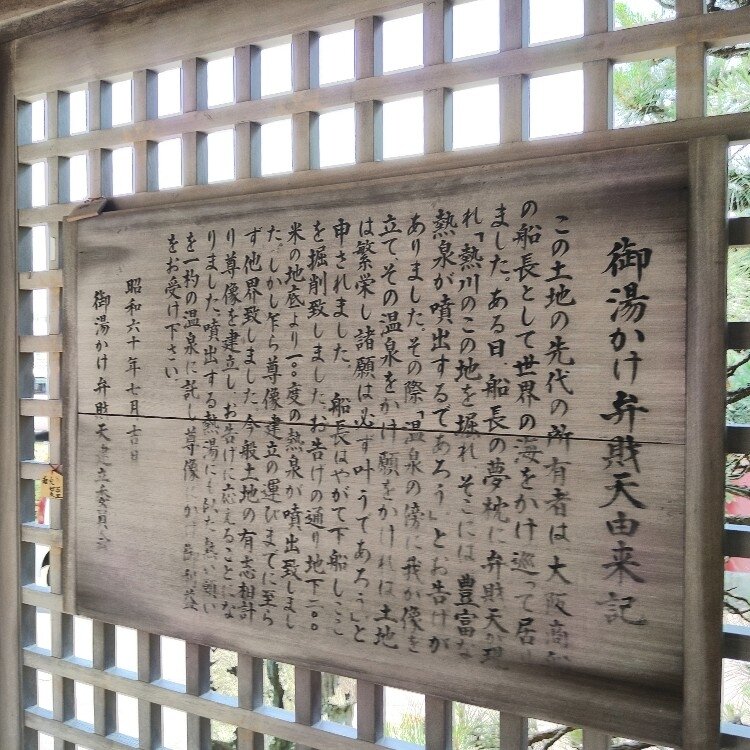 御湯かけ弁財天由来記
この土地の先代の所有者は大阪商
の船長として世界の海をかけ巡って居り
ました。ある日、船長の夢枕に弁財天が現
れ「熱川のこの地を掘れ、そこには豊富な
熱泉が噴出するであろう」とお告げが
ありました。その際「温泉の傍に我が像を
立て、その温泉をかけ願をかければ土地
は繁栄し諸願は必ず叶うであろう」と
申されました。 船長はやがて下船しここ
を掘削致しました。お告げの通り地下二〇〇
米の地底より一〇〇度の熱泉が噴出致しまし
た。しかし乍ら尊像建立の運びまでに至ら
ず他界致しました。今般土地の有志相計
り尊像を建立し、お告げに応えることにな
りました。噴出する熱湯にも似た熱い願い
を一杓の温泉に託し尊像にかけ御利益
をお受け下さい。
昭和六十年七月吉日
御湯かけ弁財天建立委員会